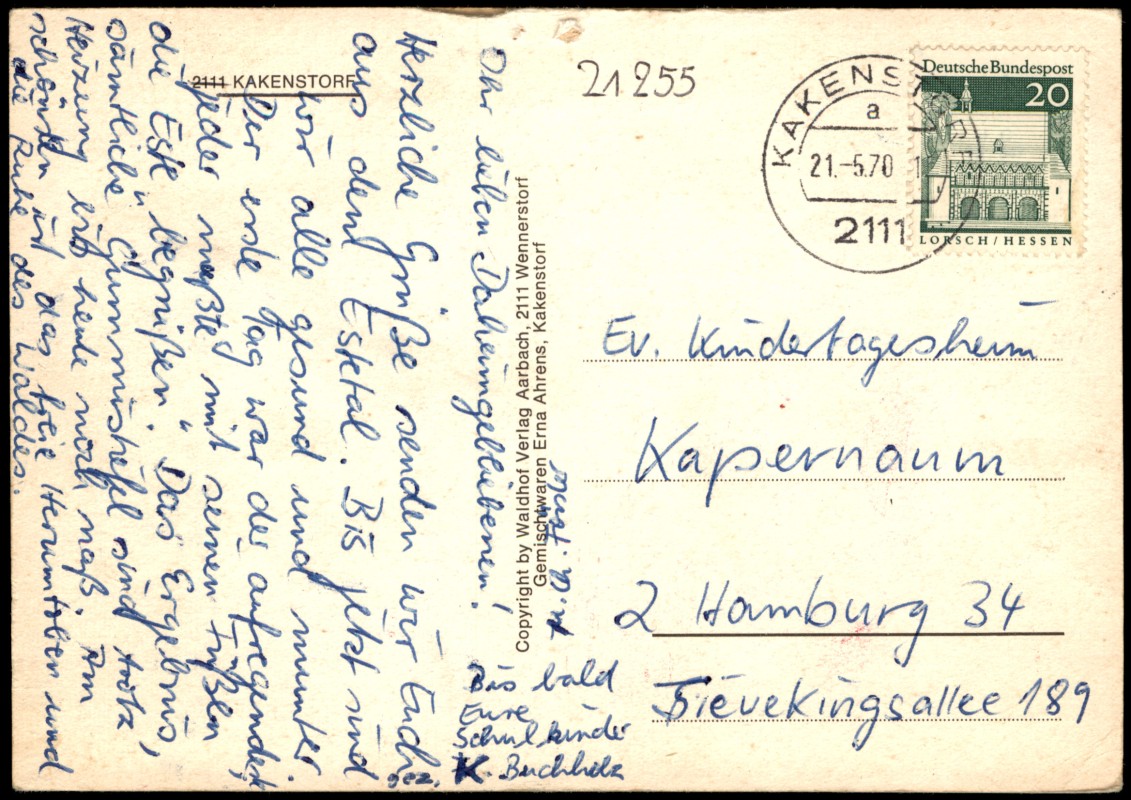 2111 KAKENSTORF
21255
Ihr lieben Daheimgebliebenen!
Herzliche Grüße senden wir Euch
aus dem Estetal. Bis jetzt sind
wir alle gesund und munter.
Der erste Tag war der aufregendste,
jeder mußte mit seinen Füßen
die Este "begrüßen". Das Ergebnis,
sämtliche Gummistiefel sind trotz
Heizung bis heute noch naß. Am
schönsten ist das freie Herumtoben und
die Ruhe des Waldes.
Bis bald
Eure
Schulkinder
gez. K. Buchholz
Copyright by Waldhof Verlag Aarbach, 2111 Wennerstorf
Gemischtwaren Erna Ahrens, Kakenstorf
KAKENS
a
21.-5.70
2111
Deutsche Bundespost
20
LORSCH/HESSEN
Ev. Kindertagesheim
Kapernaum
2 Hamburg 34
Sievekingsallee 189